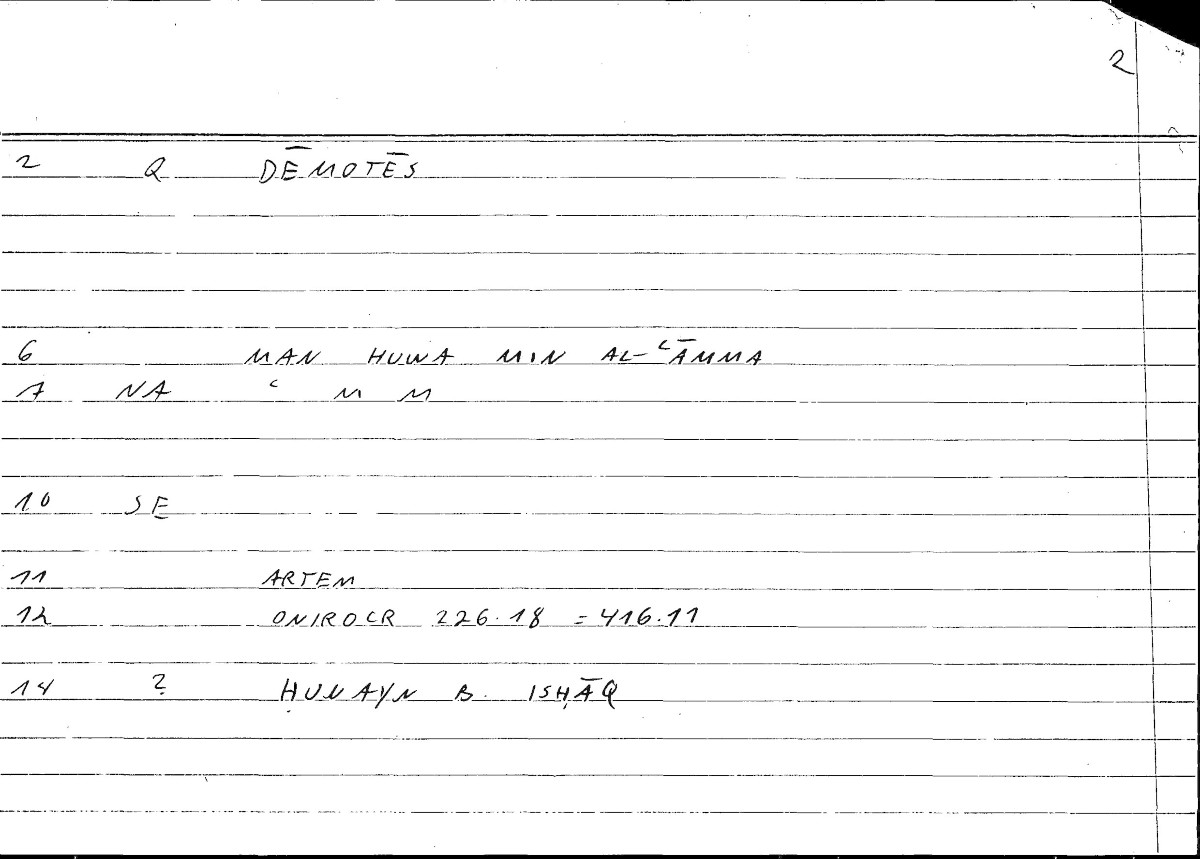 2
2 Q DĒMOTĒS
6 MAN HUWA MIN AL-ʿĀMMA
7 NA ʿ M M
10 SE
11 ARTEM
12 ONIROCR 226.18 = 416.11
14 ? ḤUNAYN B. ISḤĀQ